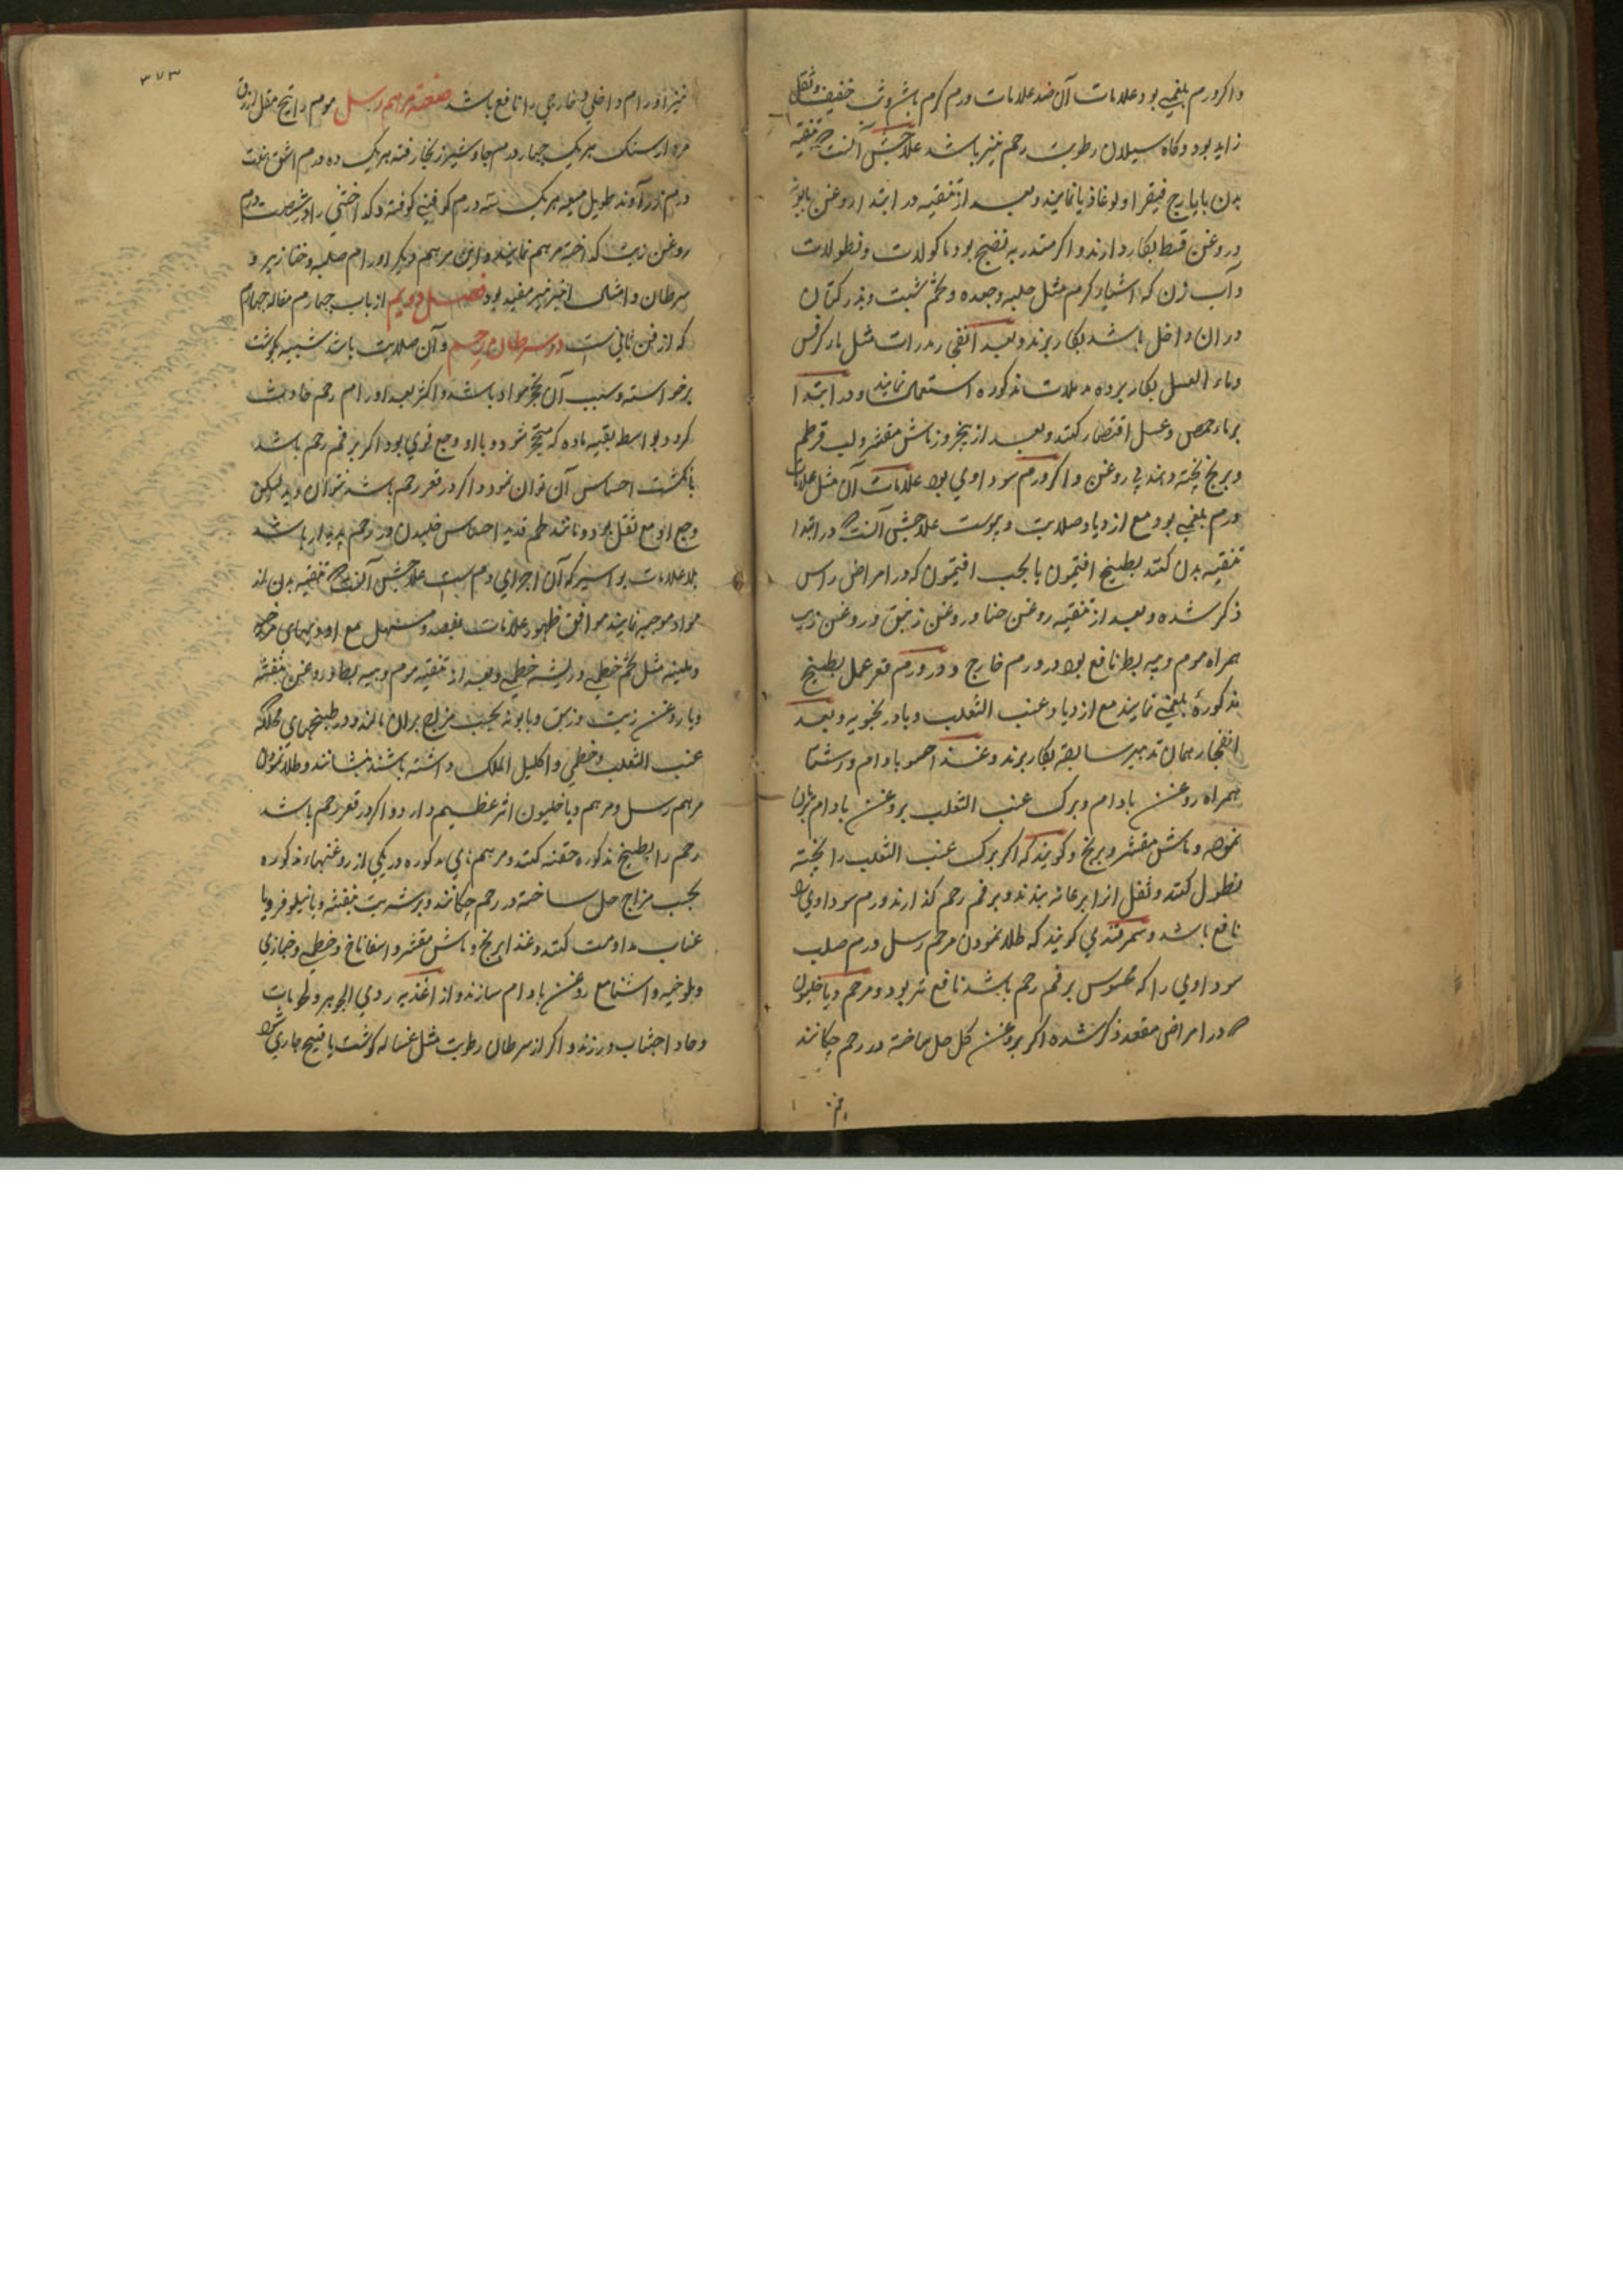 واکر ورم بلغمی بود علامات آن ضد علامات ورم کرم باشد وتب خفیف وثقل
زاید بود وکاه سیلان رطوبت رحم نیز باشد علاجش آنست که تنقیه
بدن بایارج فیقرا ولوغاذیا نمایند وبعد از تنقیه در ابتدا روغن بابونه
وروغن قسط بکار دارند واکر متدر به نضج بود ماکولات ونطولات
وآب زن که اشیاء کرم مثل حلبه وجعده وتخم شبت وبذر کتان
در ان داخل باشد بکار برند وبعد انقی مدرات مثل ما کرفس
وماء العسل بکار برده مدملات مذکوره استعمال نمایند ودر ابتدا
بر ما حمص وعسل اقتصار کنند وبعد از پنج روز ماش مقشر ولب قرطم
وبرنج پخته دهند بی روغن واکر ورم سوداوی بود علامات آن مثل علامات
ورم بلغمی بود مع ازدیاد صلابت ویبوست علاجش آنست که در ابتدا
تنقیه بدن کنند بطبیخ افتیمون یا بحب افتیمون که در امراض راس
ذکر شده وبعد از تنقیه روغن حنا وروغن زنبق وروغن زیت
همراه موم وپیه بط نافع بود در ورم خارج ودر ورم قعر عمل بطبیخ
مذکورهٔ بلغمی نمایند مع ازدیاد عنب الثعلب وبادرنجبویه وبعد
انفجار همان تدبیر سابقه بکار برند وغذا حسو بادام ورشتا
همراه روغن بادام وبرک عنب الثعلب بروغن بادام بریان
نموده وماش مقشر وبرنج وکویند که اکر برک عنب الثعلب را پخته
نطول کنند وثفل انرا بر عانه بندند وبر فم رحم کذارند ورم سوداوی را
نافع باشد وسمرقندی کویند که طلا نمودن مرهم رسل ورم صلب
سوداوی را که محسوس بر فم رحم باشد نافع تر بود ومرهم دیاخلیون
که در امراض مقعد ذکر شده اکر بروغن کل حل ساخته در رحم چکانند
نیز
٣٧٣
نیز اورام داخلی وخارجی را نافع باشد صفت مرهم رسل موم راتینج مقل ازرق
مردارسنک هر یک چهار درم جاوشیر زنجار قنه هر یک ده درم اشق هفت
درم زرآوند طویل میعه هر یک سه درم کوفتنی کوفته وکداختنی را در شصت درم
روغن زیت کداخته مرهم نمایند واین مرهم دیکر اورام صلبه وخنازیر و
سرطان وامثال انها نیز مفید بود فصل دویم از باب چهارم مقاله چهارم
که از فن ثانیست در سرطان رحم وآن صلابت باشد شبیه بکوشت
برخواسته وسبب آن تحجر مواد باشد واکثر بعد اورام رحم حادث
کردد بواسطه بقیه ماده که متحجر شود وبا او وجع قوی بود اکر بر فم رحم باشد
بانکشت احساس آن توان نمود واکر در قعر رحم باشد نتوان دید لیکن
وجع او مع ثقل بود ومانند طعم قدید احساس خلیدن در رحم پدیدار باشد
بلا علامات بواسیر که آن اجرای دم است علاجش آنست که تنقیه بدن از
مواد موجبه نمایند موافق ظهور علامات بفصد ومسهل مع ادویهای مرخیه
وملینه مثل تخم خطمی وریشه خطمی وبعد از تنقیه موم وپیه بط وروغن بنفشه
ویا روغن زیت وزنبق وبابونه بحسب مزاج بران مالند ودر طبیخهای محلله که
عنب الثعلب وخطمی واکلیل الملک داشته باشد نشانند وطلا نمودن
مرهم رسل ومرهم دیاخلیون اثر عظیم دارد واکر در قعر رحم باشد
رحم را بطبیخ مذکوره حقنه کنند ومرهم های مذکوره در یکی از روغنهاء مذکوره
بحسب مزاج حل ساخته در رحم چکانند وبر شربت بنفشه ویا نیلوفر ویا
عناب مداومت کنند وغذا برنج وماش مقشر واسفاناخ وخطمی وخبازی
وملوخیه واشنا مع روغن بادام سازند واز اغذیه ردی الجوهر ولحمانیات
وحاد اجتناب ورزند واکر از سرطان رطوبت مثل غساله کوشت یا قیح جاری شود